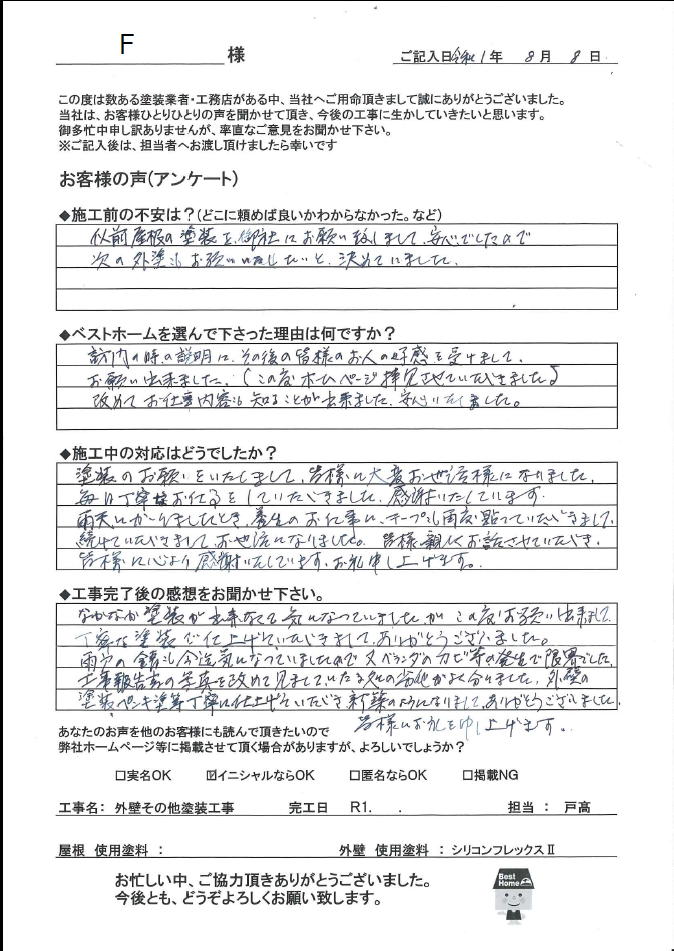 F 様
ご記入日 令和 1 年 8 月 8 日
この度は数ある塗装業者・工務店がある中、当社へご用命頂きまして誠にありがとうございました。
当社は、お客様ひとりひとりの声を聞かせて頂き、今後の工事に生かしていきたいと思います。
御多忙中申し訳ありませんが、率直なご意見をお聞かせ下さい。
※ご記入後は、担当者へお渡し頂けましたら幸いです
お客様の声(アンケート)
◆施工前の不安は?(どこに頼めば良いかわからなかった。など)
以前屋根の塗装を、御社にお願い致しまして、安心でしたので
次の外塗もお願いいたしたいと、決めていました。
◆ベストホームを選んで下さった理由は何ですか?
訪問の時の説明に、その後の皆様のお人の好感を受けまして、
お願い出来ました。(この度ホームページ拝見させていただきました)
改めてお仕事内容も知ることが出来ました、安心いたしました。
◆施工中の対応はどうでしたか?
塗装のお願いをいたしまして、皆様に大変お世話様になりました。
毎日丁寧なお仕事をしていただきました、感謝いたしています。
雨天にかかりましたとき、養生のお仕事に、テープも再度貼っていただきまして、
続けていただきましてお世話になりました。皆様親しくお話させていただき、
皆様に心より感謝いたしています、お礼申し上げます。
◆工事完了後の感想をお聞かせ下さい。
なかなか塗装が出来なくて気になっていましたが この度お願い出来まして、
丁寧な塗装で仕上げていただきまして、ありがとうございました。
雨戸の錆も今迄気になっていましたので 又ベランダのカビ等の発生で限界でした。
工事報告書の写真を改めて見まして、いたる処の劣化がよく分りました。外壁の
塗装ペンキ塗等丁寧に仕上げていただき、新築のようになりまして、ありがとうございました。
皆様にお礼を申し上げます。
あなたのお声を他のお客様にも読んで頂きたいので
弊社ホームページ等に掲載させて頂く場合がありますが、よろしいでしょうか?
□実名OK ☑イニシャルならOK □匿名ならOK □掲載NG
工事名: 外壁その他塗装工事 完工日 R1. . 担当 : 戸高
屋根 使用塗料 : 外壁 使用塗料 : シリコンフレックスⅡ
お忙しい中、ご協力頂きありがとうございました。
今後とも、どうぞよろしくお願い致します。
Best Home